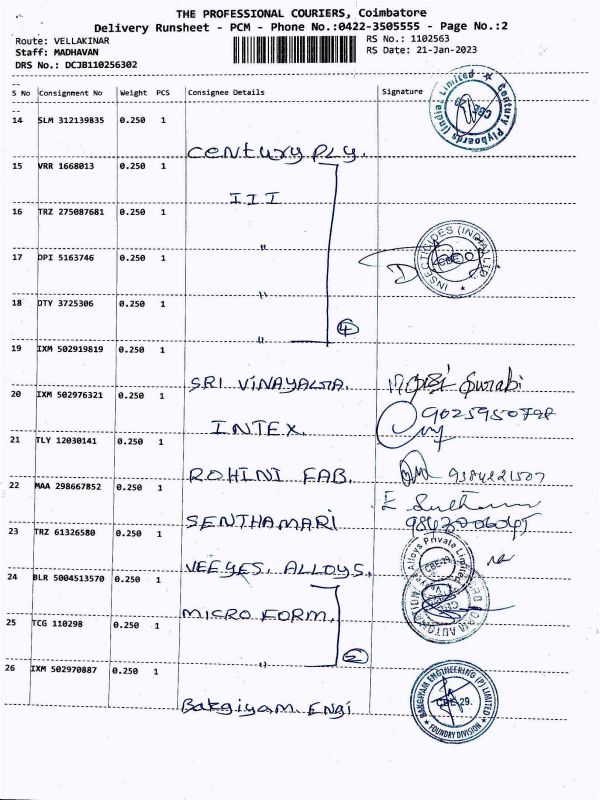 THE PROFESSIONAL COURIERS, Coimbatore
Delivery Runsheet - PCM - Phone No.:0422-3505555 - Page No.:2
Route: VELLAKINAR
RS No.: 1102563
Staff: MADHAVAN
RS Date: 21-Jan-2023
DRS No.: DCJB110256302
S No Consignment No Weight PCS Consignee Details Signature
14 SLM 312139835 0.250 1
Century Ply.
Century Plyboards (India) Limited
15 VRR 1668013 0.250 1
III
16 TRZ 275087681 0.250 1
"
17 DPI 5163746 0.250 1
INSECTICIDES (INDIA) LTD
"
18 DTY 3725306 0.250 1
"
4
19 IXM 502919819 0.250 1
SRI VINAYAGA.
20 IXM 502976321 0.250 1
INTEX.
9025950798
21 TLY 12030141 0.250 1
ROHINI FAB.
9384221507
22 MAA 298667852 0.250 1
SENTHAMARI
23 TRZ 61326580 0.250 1
VEEYES. ALLOYS.
Alloys Private Limited
CBE-29.
24 BLR 5004513570 0.250 1
MICRO FORM.
25 TCG 110298 0.250 1
"
2
26 IXM 502970887 0.250 1
Bakgiyam. ENGI
BAKGIYAM ENGINEERING (P) LIMITED
CBE-29.
FOUNDRY DIVISION